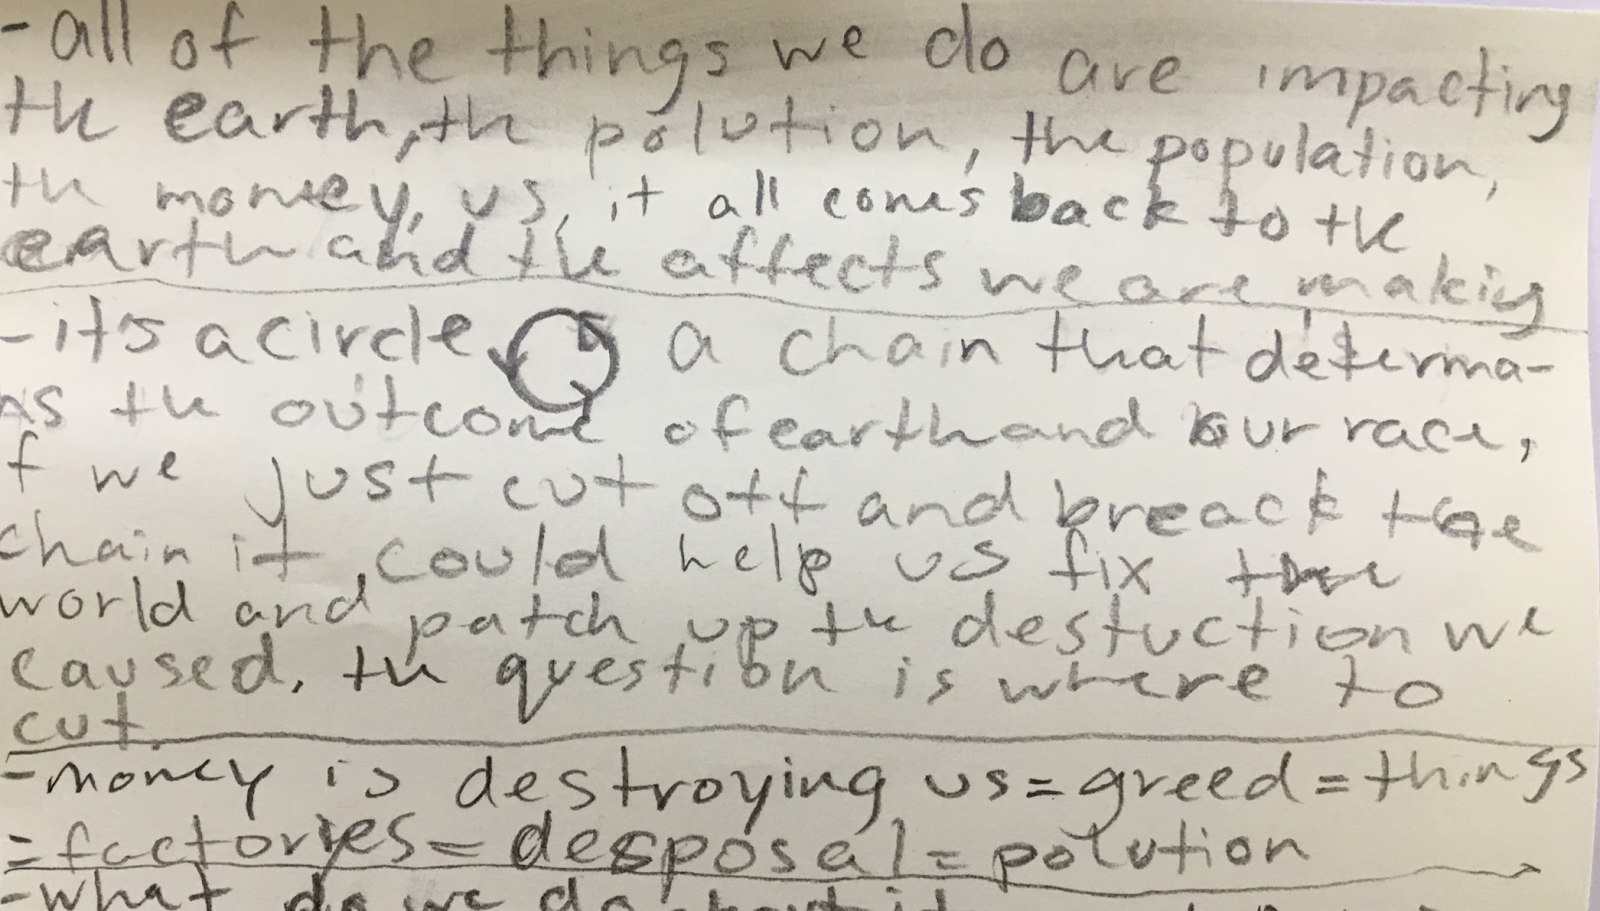 - all of the things we do are impacting
the earth, the polution, the population,
the money, us, it all comes back to the
earth and the affects we are making
- its a circle a chain that determa-
ns the outcome of earth and our race,
f we just cut off and breack the
chain it could help us fix the
world and patch up the destuction we
caused. the question is where to
cut.
- money is destroying us = greed = things
= factories = desposal = polution
- what do we do about it